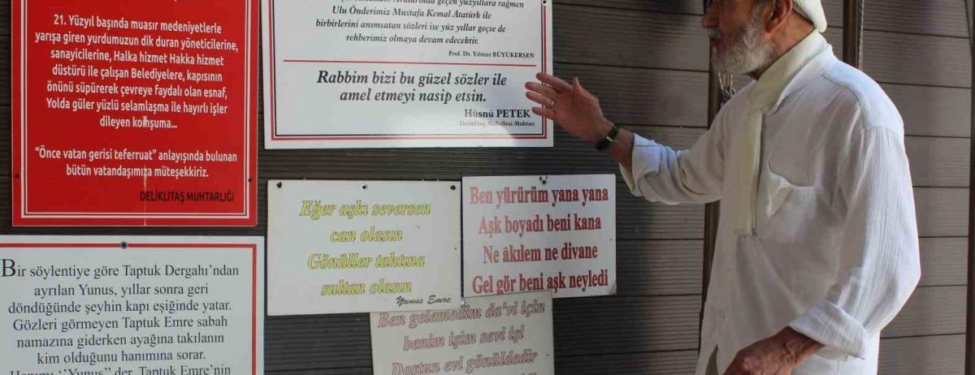 21. Yüzyıl başında muasır medeniyetlerle
yarışa giren yurdumuzun dik duran yöneticilerine,
sanayicilerine, Halka hizmet Hakka hizmet
düstürü ile çalışan Belediyelere, kapısının
önünü süpürerek çevreye faydalı olan esnaf,
Yolda güler yüzlü selamlaşma ile hayırlı işler
dileyen komşuma...
“Önce vatan gerisi teferruat” anlayışında bulunan
bütün vatandaşımıza müteşekkiriz.
DELİKLİTAŞ MUHTARLIĞI
geçen yüzyıllara rağmen
Ulu Önderimiz Mustafa Kemal Atatürk ile
birbirlerini anımsatan sözleri ise yüz yıllar geçse de
rehberimiz olmaya devam edecektir.
Prof. Dr. Yılmaz BÜYÜKERŞEN
Rabbim bizi bu güzel sözler ile
amel etmeyi nasip etsin.
Hüsnü PETEK
Deliklitaş Mahallesi Muhtarı
Eğer aşkı seversen
can olasın
Gönüller tahtına
sultan olasın
Yunus Emre
Ben yürürüm yana yana
Aşk boyadı beni kana
Ne âkılem ne divane
Gel gör beni aşk neyledi
Ben gelmedim da'vi için
benim işim sevi işi
Dostun evi gönüldedir
Bir söylentiye göre Taptuk Dergahı'ndan
ayrılan Yunus, yıllar sonra geri
döndüğünde şeyhin kapı eşiğinde yatar.
Gözleri görmeyen Taptuk Emre sabah
namazına giderken ayağına takılanın
kim olduğunu hanımına sorar.
Hanımı ''Yunus'' der. Taptuk Emre'nin